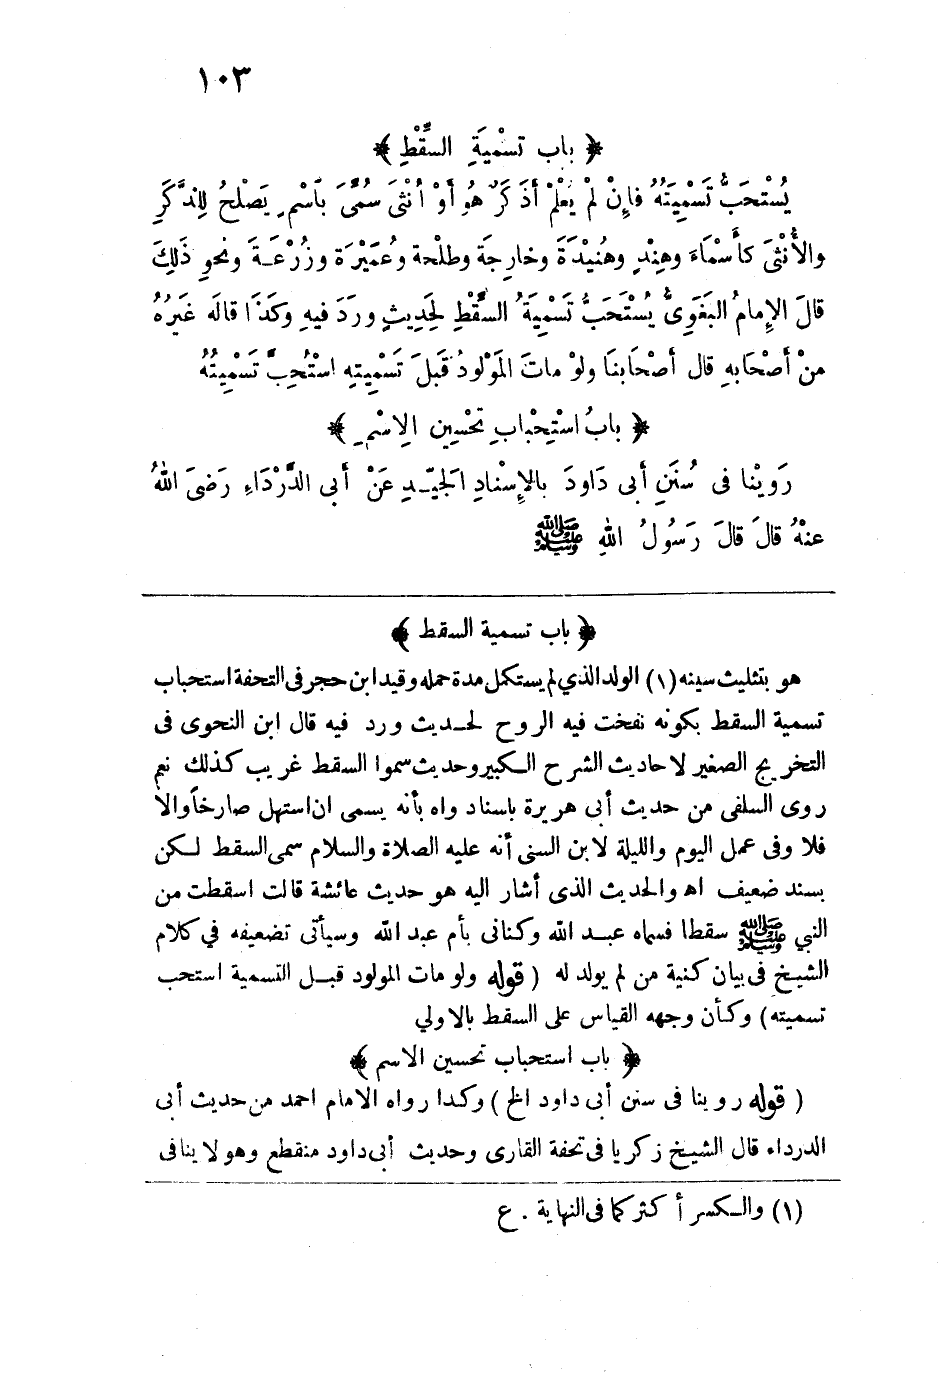 ١٠٣
﴿ باب تسْمِيَةِ السِّقْطِ ﴾
يُسْتَحَبُّ تَسْمِيَتُهُ فإِنْ لمْ يُعْلَمْ أذَكَرٌ هُو أوْ أُنْثَى سُمِّىَ بِاسْمٍ يَصْلُحُ لِلذَّكَرِ
والأُنْثَى كأَسْمَاءَ وهِنْدٍ وهُنَيْدَةَ وخارِجَةَ وطلْحة وعُمَيْرَة وزُرْعَةَ ونحوِ ذَلِكَ
قالَ الإِمامُ البَغَوِىُّ يُسْتَحَبُّ تَسْمِيَةُ السَّقْطِ لحَدِيثٍ ورَدَ فيهِ وكَذَا قالَه غَيرُهُ
منْ أصْحَابِهِ قال أصْحَابنَا ولوْ ماتَ المَوْلودُ قَبلَ تَسْمِيتهِ اسْتُحِبَّ تَسْمِيتُهُ
﴿ بابُ اسْتِحْبابِ تحْسِينِ الِاسْمِ ﴾
رَوينْا فى سُنَنِ أبى دَاودَ بالإِسْنادِ الجَيّدِ عَنْ أبى الدَّرْدَاءِ رَضىَ اللهُ
عنْهُ قالَ قالَ رَسُولُ اللهِ ﷺ
﴿ باب تسمية السقط ﴾
هو بتثليث سينه (١) الولد الذي لم يستكمل مدة حمله وقيد ابن حجر فى التحفة استحباب
تسمية السقط بكونه نفخت فيه الروح لحديث ورد فيه قال ابن النحوى فى
التخريج الصغير لاحاديث الشرح الكبير وحديث سموا السقط غريب كذلك نعم
روى السلفى من حديث أبى هريرة باسناد واه بأنه يسمى ان استهل صارخا والا
فلا وفى عمل اليوم والليلة لابن السنى أنه عليه الصلاة والسلام سمى السقط لكن
بسند ضعيف اه والحديث الذى أشار اليه هو حديث عائشة قالت اسقطت من
النبي ﷺ سقطا فسماه عبد الله وكنانى بأم عبد الله وسيأتى تضعيفه في كلام
الشيخ فى بيان كنية من لم يولد له ( قوله ولو مات المولود قبل التسمية استحب
تسميته) وكأن وجهه القياس على السقط بالاولي
﴿ باب استحباب تحسين الاسم ﴾
( قوله روينا فى سنن أبى داود الخ ) وكذا رواه الامام احمد من حديث أبى
الدرداء قال الشيخ زكريا فى تحفة القارى وحديث أبى داود منقطع وهو لا ينافى
(١) والكسر أكثر كما فى النهاية . ع